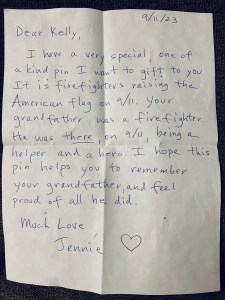 9/11/23
Dear Kelly,
I have a very special, one of
a kind pin I want to gift to you
It is firefighters raising the
American flag on 9/11. Your
grandfather was a firefighter.
He was there, on 9/11, being a
helper and a hero. I hope this
pin helps you to remember
your grandfather, and feel
proud of all he did.
Much Love
Jennie